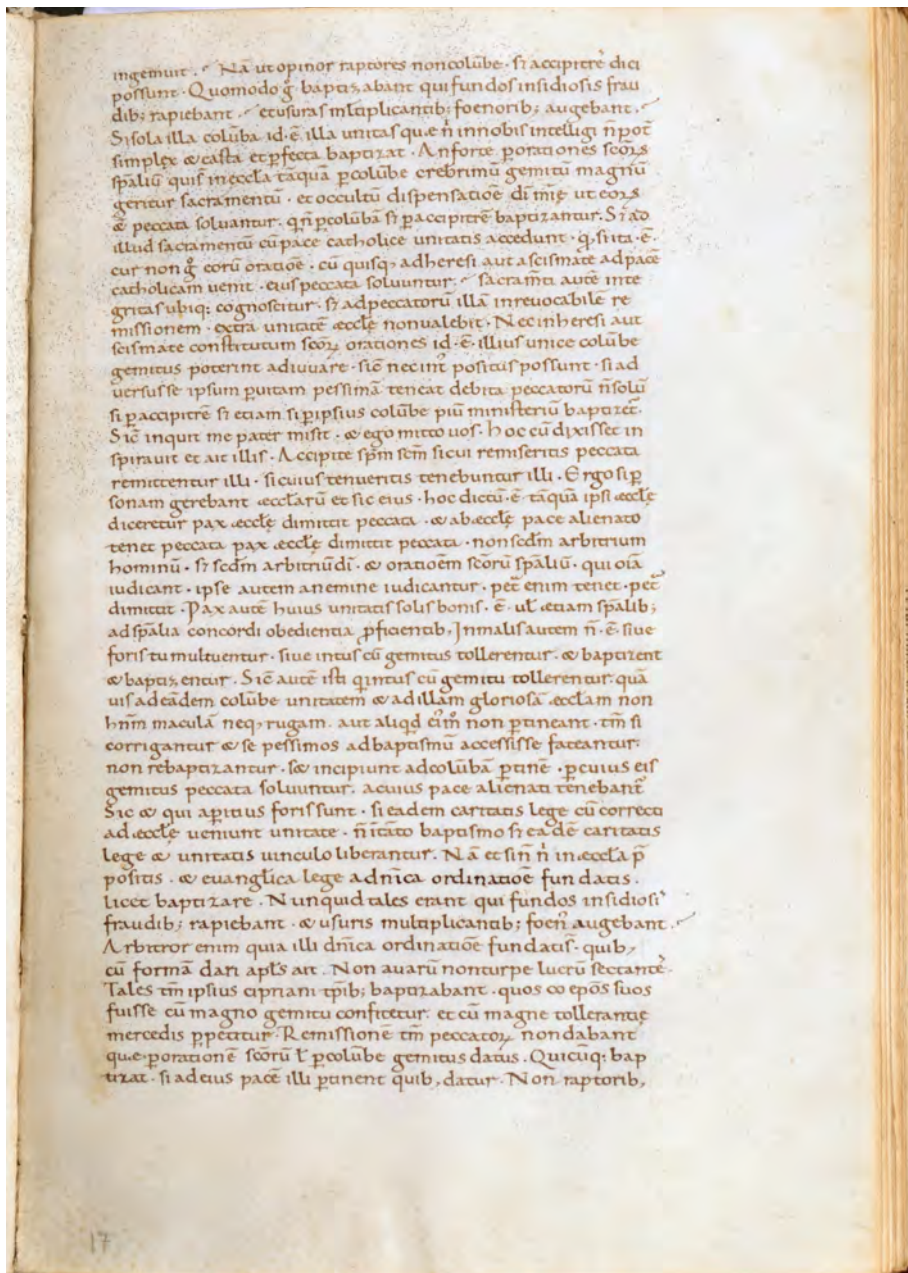 ingemuit ·⁓ Nā ut opinor raptores non colūbe · sꝫ accipitrē dici
possunt · Quomodo g̊ baptizabant qui fundos insidiosis frau
dibꝫ rapiebant ·⁓ et usuras ml̄tiplicantibꝫ foenoribꝫ augebant ·⁓
Si sola illa colūba id · ē · illa unitas que n̄ in nobis intelligi n̄ pot̄
simplex & casta et ꝑfecta baptizat · An forte ꝑ orationes scōꝝ
spāliū qui s̄ in eccl̄a tāquā ꝑ colūbe crebrimū gemitū magnū
geritur sacramentū · et occultū dispensatiōe dī mīę ut eoꝝ
& peccata soluantur · q n̄ ꝑ colūbā sꝫ ꝑ accipitrē baptizantur. Si ad
illud sacramentū cū pace catholice unitatis accedunt · qꝫ si ita · ē ·
cur non g̊ eorū oratiōe · cū quisqꝫ ad heresi aut a scismate ad pacē
catholicam uenit · eius peccata soluuntur ·⁓ sacram̄ti autē inte
gritas ubiqꝫ cognoscitur · sꝫ ad peccatorū illā inrevocabile re
missionem · extra unitatē æccl̄e non valebit · Nec in heresi aut
scismate constitutum scōꝝ orationes id · ē · illius unice colūbe
gemitus poterint adiuuare · sic̄ nec int̄ positus possunt · si ad
versus se ipsum ꝑ uitam pessimā teneat debita peccatorū n̄ solū
si ꝑ accipitrē sꝫ etiam si ꝑ ipsius colūbe piū ministeriū baptizet̄ ·
Sic̄ inquit me pater misit · & ego mitto uos · hoc cū dixisset in
spiravit et ait illis · Accipite sp̄m sc̄m si cui remiseritis peccata
remittentur illi · si cuius tenueritis tenebuntur illi · Ergo si ꝑ
sonam gerebant æccl̄arū et sic eius · hoc dictū · ē · tāquā ipsi æccl̄ę
diceretur pax æccl̄ę dimittit peccata · & ab æccl̄ę pace alienato
tenet peccata pax æccl̄ę dimittit peccata · non scd̄m arbitrium
hominū · sꝫ scd̄m arbitriū dī · & oratiōem scōrū spāliū · qui oīa
iudicant · ipse autem a nemine iudicantur · pet̄ enim tenet · pet̄
dimittit · Pax autē huius unitatis solis bonis · ē · ul̄ ætiam spālibꝫ
ad spālia concordi obedientia ꝓficientibꝫ, In malis autem n̄ · ē · siue
foris tumultuentur · siue intus cū gemitus tollerentur · & baptizent
& baptizentur · Sic̄ autē isti q intus cū gemitu tollerentur · quā
uis ad eādem colūbe unitatem & ad illam gloriosā æccl̄am non
hn̄m maculā neqꝫ rugam · aut aliqd̄ ei̇̄m̊ non ꝑtineant · tm̄ si
corrigantur & se pessimos ad baptismū accessisse fateantur ·
non rebaptizantur · s& incipiunt ad colūbā ꝑtinē · ꝑ cuius eis
gemitus peccata soluuntur · a cuius pace alienati tenebant̄
Sic & qui aꝑtius foris sunt · si eadem caritatis lege cū correcti
ad æccl̄ę ueniunt unitate · n̄ it̄ato baptismo sꝫ eadē caritatis
lege & unitatis uinculo liberantur. Nā et si n̄ n̄ in æccl̄a p̄
positis · & evangl̄ica lege a dn̄ica ordinatiōe fundatis ·
licet baptizare · Nunquid tales erant qui fundos insidiosis
fraudibꝫ rapiebant · & usuris multiplicantibꝫ foen̄ augebant ·⁓
Arbitror enim quia illi dn̄ica ordinatiōe fundati s̄ · quibꝫ
cū formā dari apl̄s ait · Non auarū non turpe lucrū sectantē ·
Tales tm̄ ipsius cipriani tp̄ibꝫ baptizabant · quos co ep̄os suos
fuisse cū magno gemitu confitetur · et cū magne tollerantię
mercedis ꝑpetitur · Remissionē tm̄ peccatoꝝ non dabant
que · ꝑ orationē scōrū l̄ ꝑ colūbe gemitus datus · Quicūqꝫ bap
tizat · si ad eius pacē illi ꝑtinent quibꝫ datur · Non raptoribꝫ
17